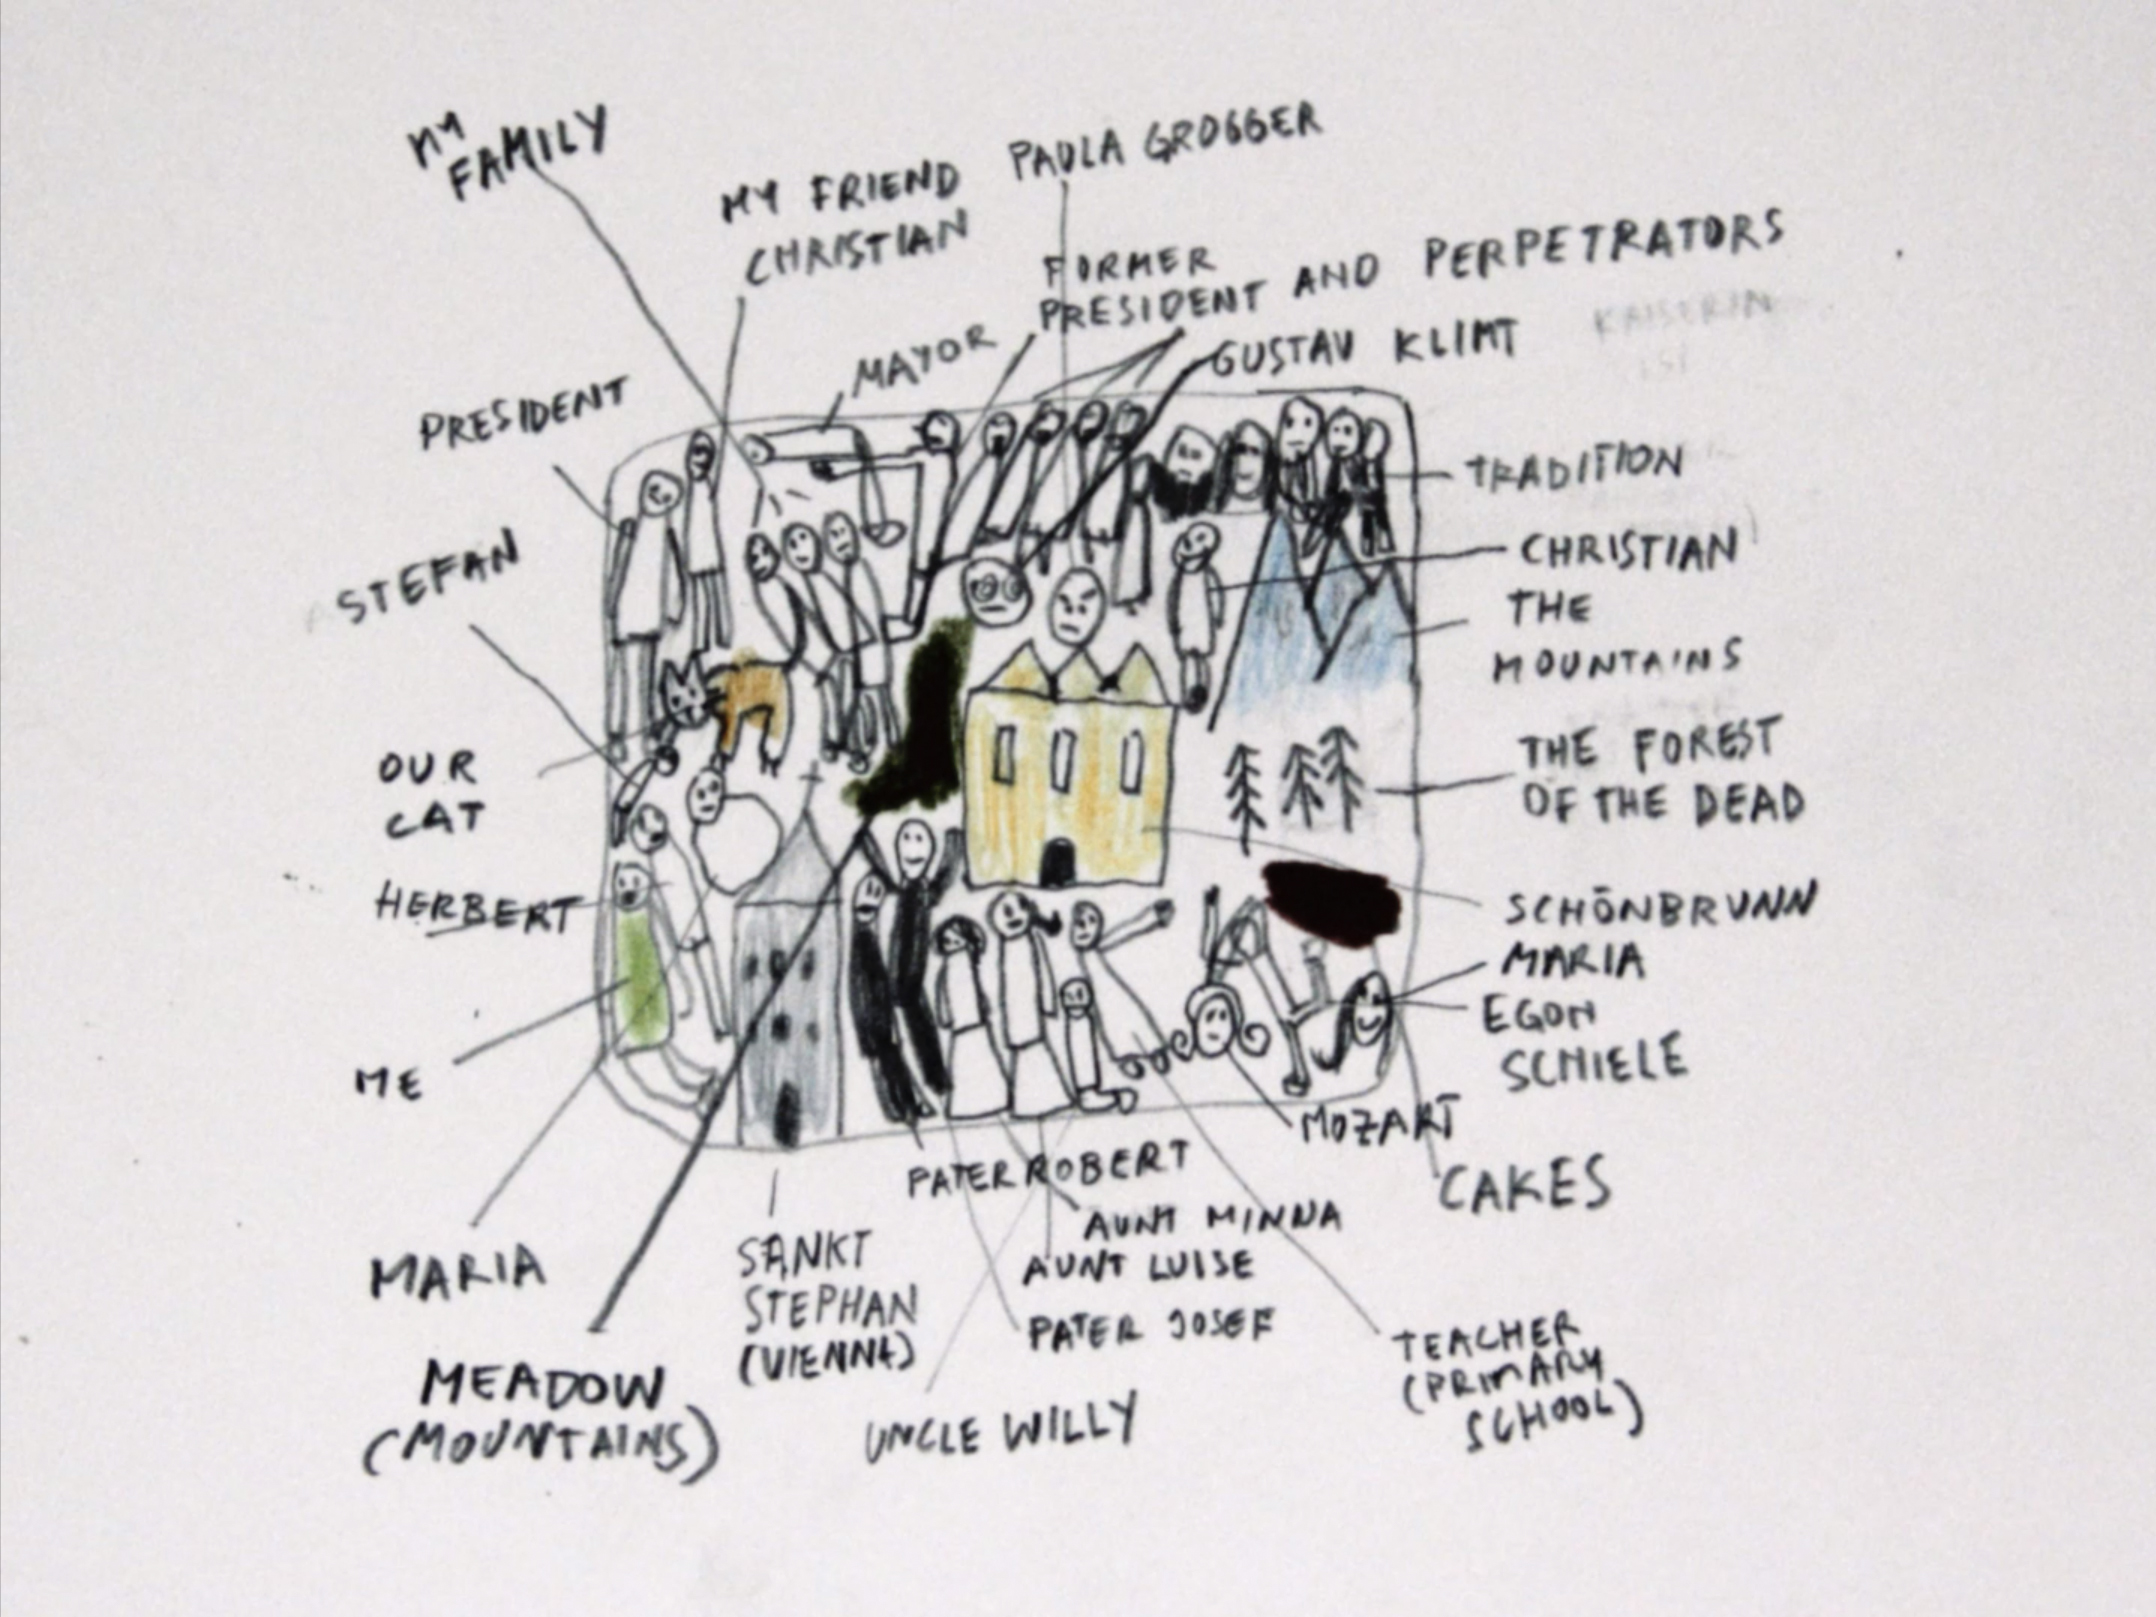 MY
FAMILY
MY FRIEND
CHRISTIAN
PAULA GROGGER
FORMER
PRESIDENT AND PERPETRATORS
MAYOR
GUSTAV KLIMT
PRESIDENT
STEFAN
OUR
CAT
HERBERT
ME
MARIA
MEADOW
(MOUNTAINS)
SANKT
STEPHAN
(VIENNA)
TRADITION
CHRISTIAN
THE
MOUNTAINS
THE FOREST
OF THE DEAD
SCHÖNBRUNN
MARIA
EGON
SCHIELE
MOZART
CAKES
PATER ROBERT
AUNT MINNA
AUNT LUISE
PATER JOSEF
UNCLE WILLY
TEACHER
(PRIMARY
SCHOOL)